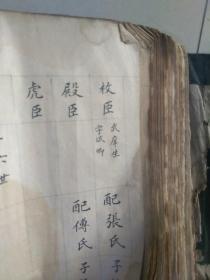 枚臣
武庠生
字成卿
配張氏子
殿臣
配傅氏子
虎臣